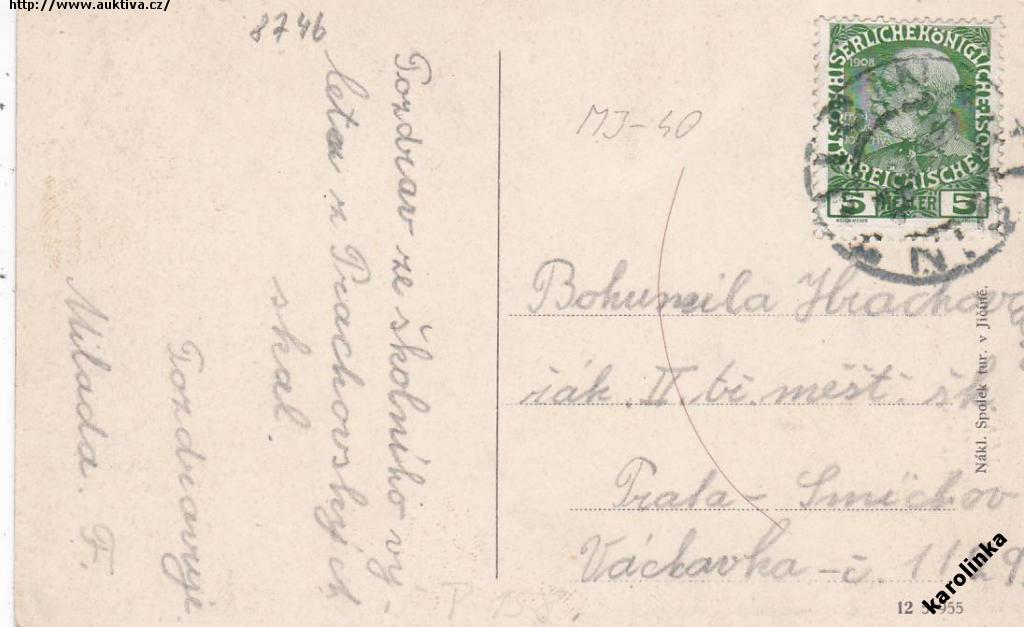 http://www.auktiva.cz/
8746
Pozdrav ze školního vý-
letu z Prachovských
skal.
Pozdravuje
Milada. F.
MJ-40
KAISERLICHE KÖNIGLICHE
ÖSTERREICHISCHE POST
1908
5 HELLER 5
Bohumila Hrachov
žák. II. tř. měšť. šk.
Praha - Smíchov
Václavka - č. 1129
Nákl. Spolek tur. v Jičíně.
P 158.
12 955
karolinka